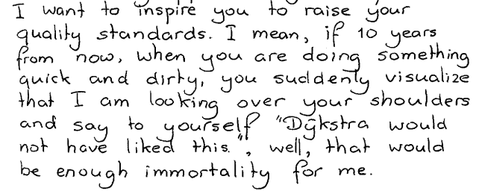 I want to inspire you to raise your
quality standards. I mean, if 10 years
from now, when you are doing something
quick and dirty, you suddenly visualize
that I am looking over your shoulders
and say to yourself "Dijkstra would
not have liked this.", well, that would
be enough immortality for me.